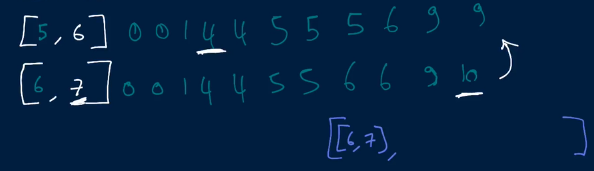 [5, 6] 0 0 1 4 4 5 5 5 6 9 9
[6, 7] 0 0 1 4 4 5 5 6 6 9 10
[[6,7), ]